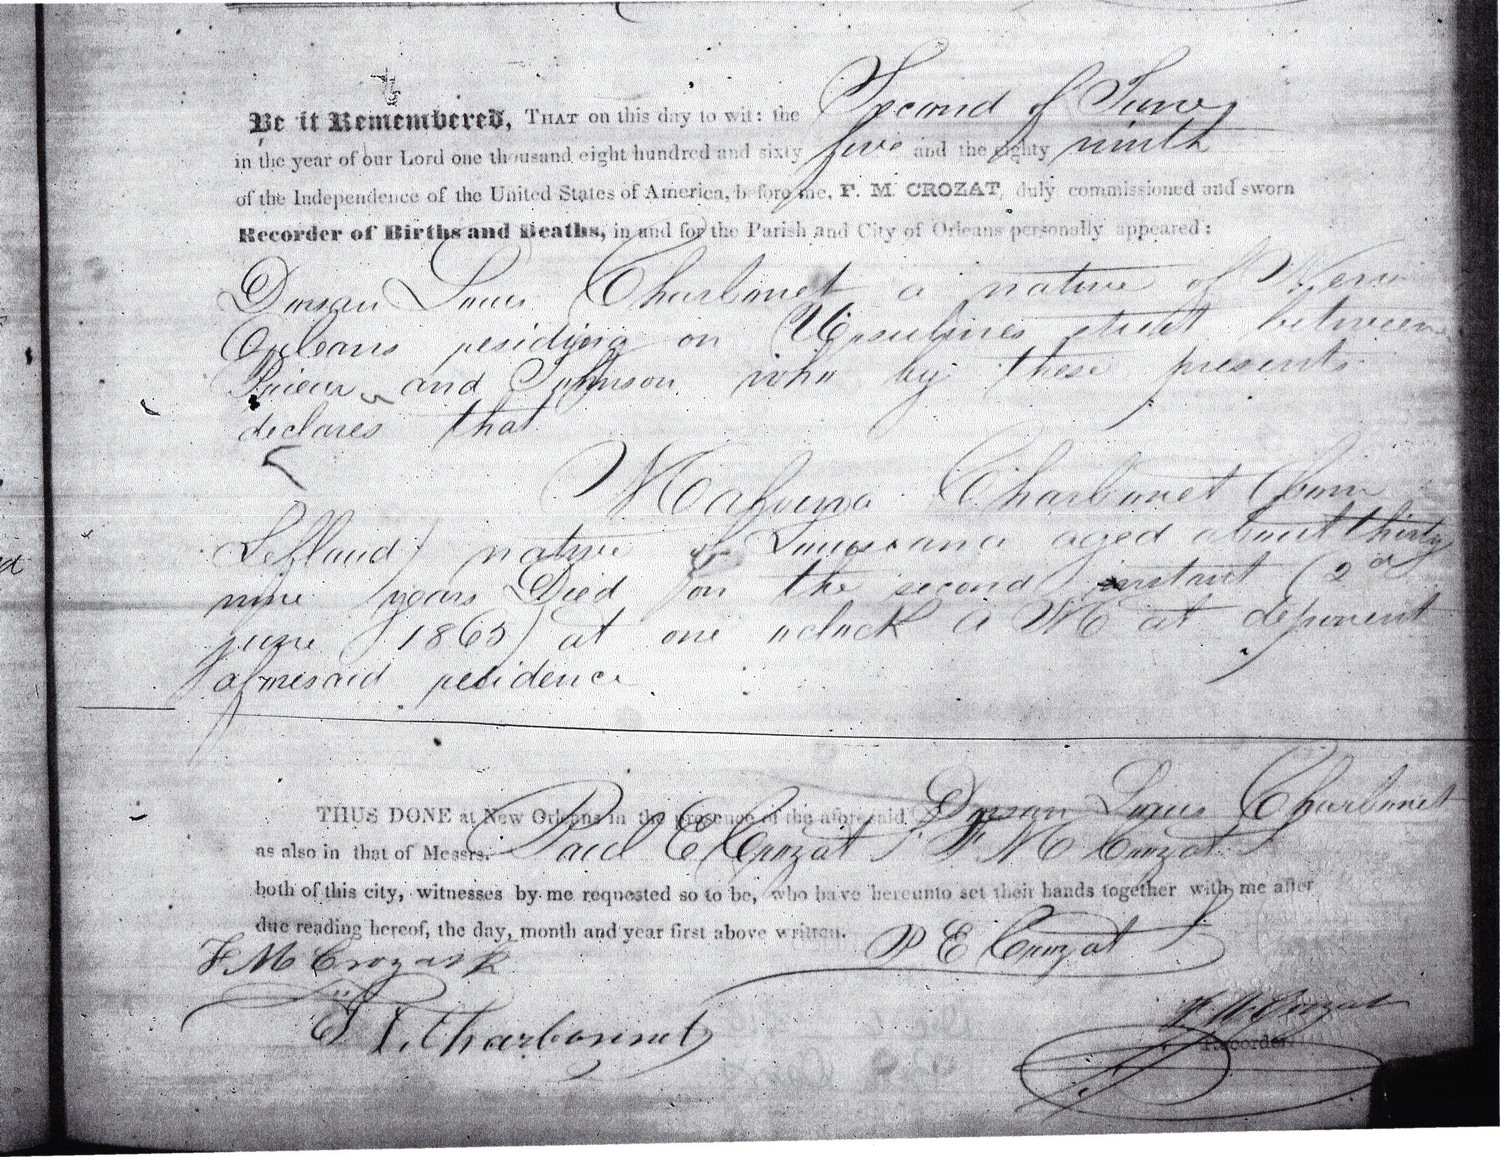 Be it Remembered, THAT on this day to wit: the Second of June
in the year of our Lord one thousand eight hundred and sixty five and the eighty ninth
of the Independence of the United States of America, before me, F. M. CROZAT, duly commissioned and sworn
Recorder of Births and Deaths, in and for the Parish and City of Orleans personally appeared:
Dorsan Louis Charbonet a native of New
Orleans residing on Ursulines street between
Prieur and Johnson who by these presents
declares that
Malvina Charbonet (born
native of Louisiana aged about thirty
nine years Died on the second instant (2d
june 1865) at one oclock A M at deponent
aforesaid residence
THUS DONE at New Orleans in the presence of the aforesaid Dorsan Louis Charbonet
as also in that of Messrs. Paul E Crozat & F M Crozat
both of this city, witnesses by me requested so to be, who have hereunto set their hands together with me after
due reading hereof, the day, month and year first above written. P E Crozat
F M Crozat
Charbonnet
F M Crozat
Recorder.